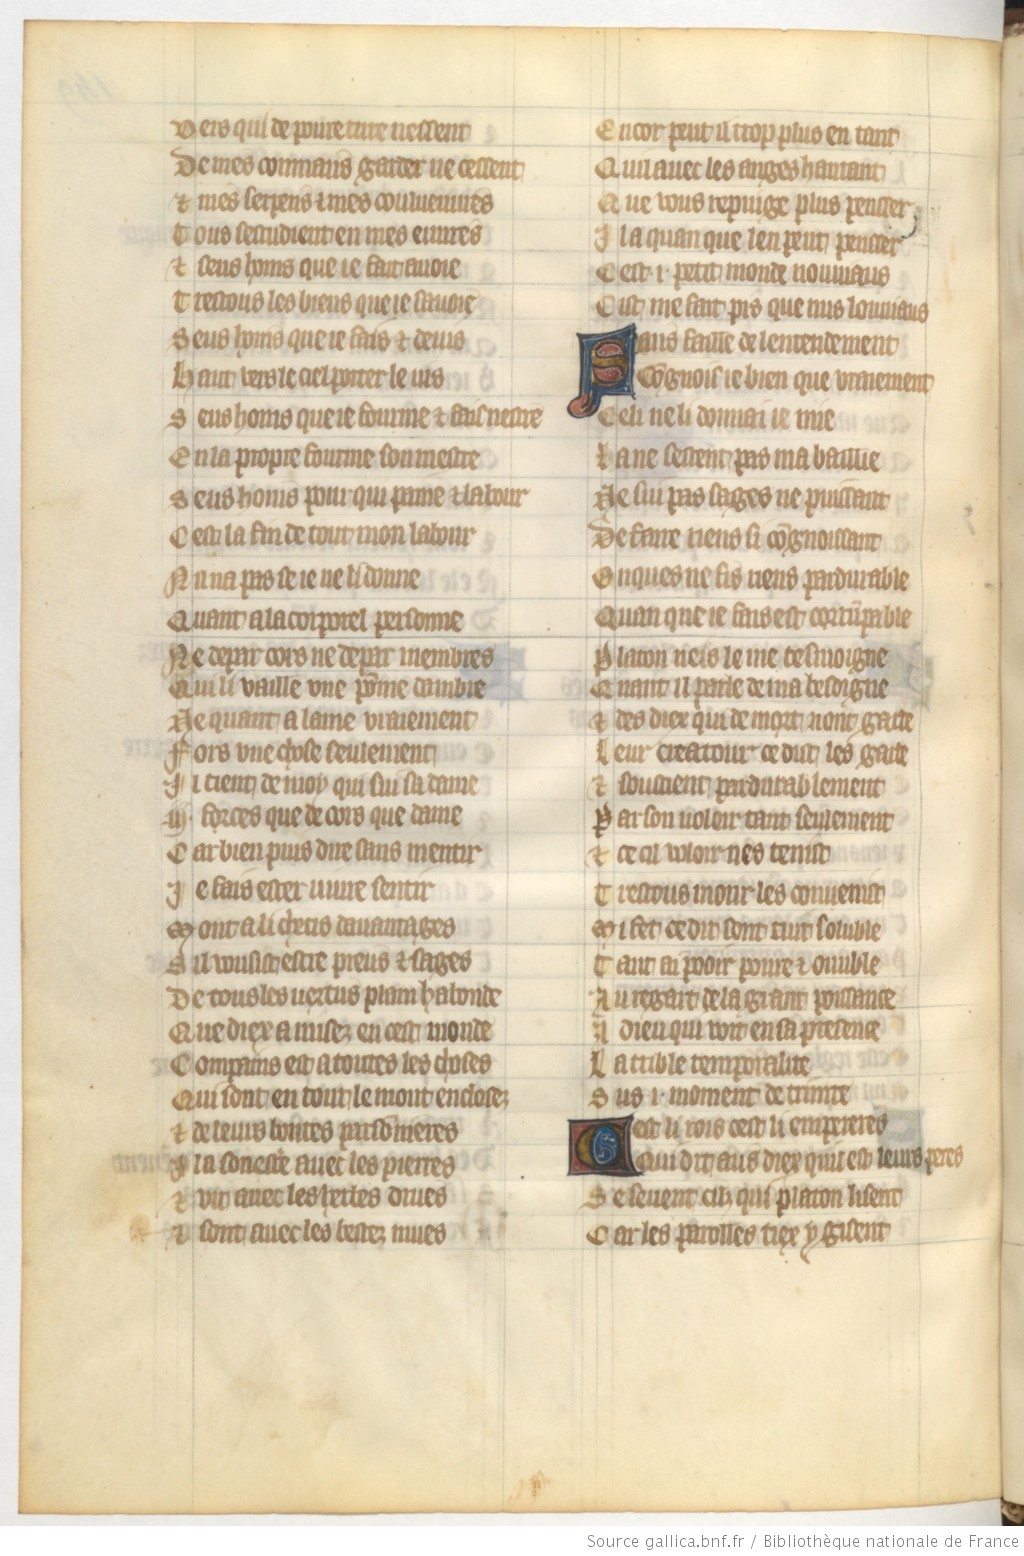 Vers qui de pourreture nessent
De mes commans garder ne cessent
& mes serpens & mes couluevrines
Tous sestudient en mes euvres
& seus homs que ie fait avoie
Trestous les biens que ie savoie
Seus homs que ie fais & devis
Haut vers le ciel porter le vis
Seus homs que ie fourme & fais nestre
En la propre fourme son mestre
Seus homs pour qui paine & labour
Cest la fin de tout mon labour
Nil na pas se ie ne li donne
Quant a la corporel personne
Ne de par cors ne de par membres
Qui li vaille une pōme dambre
Ne quant a lame vraiement
Fors une chose seulement
Il tient de moy qui sui sa dame
.iij. forces que de cors que dame
Car bien puis dire sans mentir
Ie fais ester vivre sentir
Mont a li chetis davantages
Sil vousist estre preus & sages
De tous les vertus plain habonde
Que diex a misez en cest monde
Compains est a toutes les choses
Qui sont en tout le mont enclosez
& de leurs bontes parsōnieres
Il a son estre avec les pierres
& vit avec les herbes drues
& sent avec les bestez mues
Encor peut il trop plus en tant
Quil avec les anges hantant
Que vous repuige plus penser
Il a quan que len peut penser
Cest .i. petit monde nouviaus
Cist me fait pis que nus louviaus
Sans faille de lentendement
Cōgnois ie bien que vraiement
Celi ne li donnai ie mie
La ne sestent pas ma baillie
Ne sui pas sages ne puissant
De faire riens si cōgnoissant
Onques ne fis riens pardurable
Quan que ie fais est corrūpable
Platon neis le me tesmoigne
Quant il parle de ma besoigne
& des diex qui de mort nont garde
Leur creatour ce dit les garde
& soustient pardurablement
Par son voloir tant seulement
& ce cil voloir nes tenist
Trestous mourir les convenist
Mi fet ce dit sont tuit soluble
Tant ai pooir povre & onuble
Au regart de la grant poissance
A dieu qui voit en sa presence
La trible temporalite
Sus .i. moment de trinite
Cest li rois cest li empereres
Qui dit aus diex quil est leurs peres
Se sevent cilz qui platon lisent
Car les parolles tiex y gisent
Source gallica.bnf.fr / Bibliothèque nationale de France